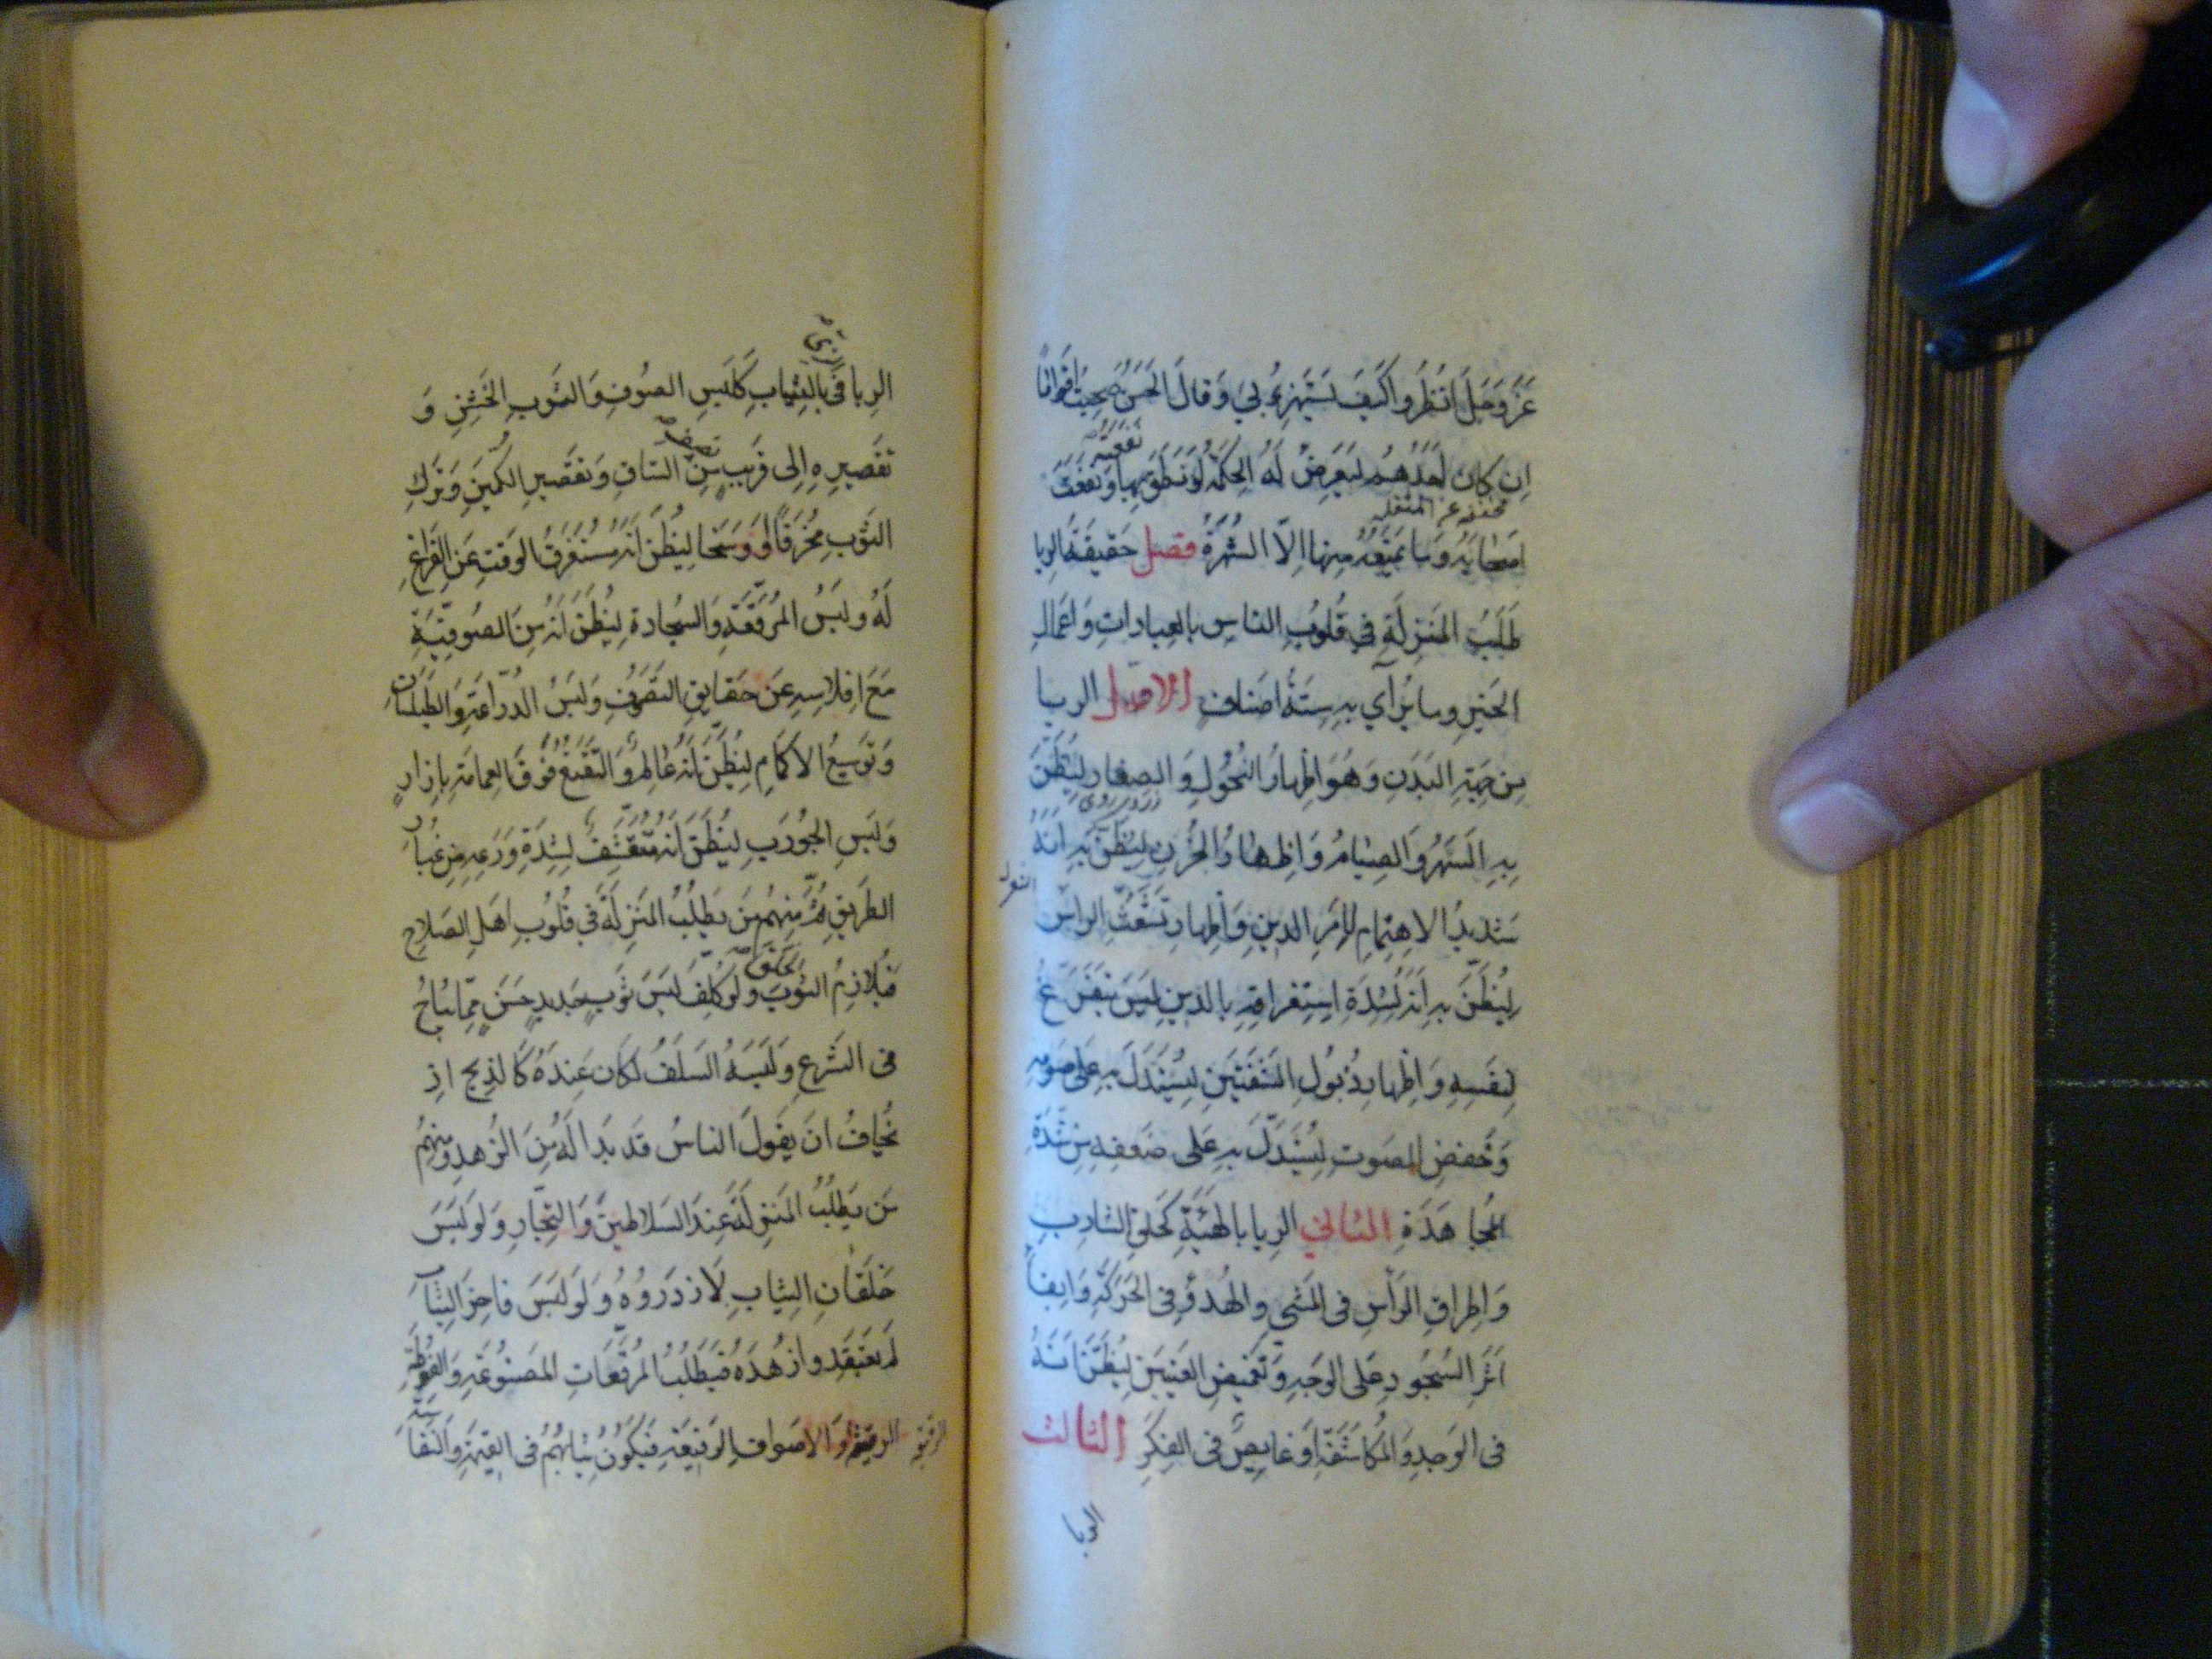 عَزَّ وَجَلَّ انْظُرُوا كَيْفَ يَسْتَهْزِئُ بِي وَقَالَ الْحَسَنُ صَحِبْتُ اَقْوَامًا
اِنْ كَانَ اَحَدُهُمْ لَتَعْرِضُ لَهُ الْحِكْمَةُ لَوْ نَطَقَ بِهَا وَنَفَعَتْ
نفعته
مخففة عن المثقلة
اَصْحَابَهُ وَمَا يَمْنَعُهُ مِنْهَا اِلَّا الشُّهْرَةُ فصل حَقِيقَةُ الرِّيَا
طَلَبُ الْمَنْزِلَةِ فِي قُلُوبِ النَّاسِ بِالْعِبَادَاتِ وَاَعْمَالِ
الْخَيْرِ وَمَا يُرَاآى بِهِ سِتَّةُ اَصْنَافٍ الاول الرِّيَا
مِنْ جِهَةِ الْبَدَنِ وَهُوَ اِظْهَارُ النُّحُولِ وَالصُّفَارِ لِيُظَنَّ
بِهِ السَّهَرُ وَالصِّيَامُ وَاِظْهَارُ الْحُزْنِ لِيُظَنَّ بِهِ اَنَّهُ
شَدِيدُ الِاهْتِمَامِ لِاَمْرِ الدِّينِ وَاِظْهَارِ تَشَعُّثِ الرَّأْسِ
لِيُظَنَّ بِهِ اَنَّهُ لِشِدَّةِ اسْتِغْرَاقِهِ بِالدِّينِ لَيْسَ يَتَفَرَّغُ
لِنَفْسِهِ وَاِظْهَارِ ذُبُولِ الشَّفَتَيْنِ لِيُسْتَدَلَّ بِهِ عَلَى صَوْمِهِ
وَخَفْضِ الصَّوْتِ لِيُسْتَدَلَّ بِهِ عَلَى ضَعْفِهِ مِنْ شِدَّةِ
الْمُجَاهَدَةِ الثاني الرِّيَا بِالْهَيْئَةِ كَحَلْقِ الشَّارِبِ
وَاِطْرَاقِ الرَّأْسِ فِي الْمَشْيِ وَالْهُدُوِّ فِي الْحَرَكَةِ وَاِبْقَاءِ
اَثَرِ السُّجُودِ عَلَى الْوَجْهِ وَتَغْمِيضِ الْعَيْنَيْنِ لِيُظَنَّ اَنَّهُ
فِي الْوَجْدِ وَالْمُكَاشَفَةِ اَوْ غَايِصٌ فِي الْفِكْرِ الثالث
الريا
الرِّيَا فِي بِالثِّيَابِ كَلُبْسِ الصُّوفِ وَالثَّوْبِ الْخَشِنِ وَ
تَقْصِيرِهِ اِلَى قَرِيبٍ مِنَ السَّاقِ وَتَقْصِيرِ الْكُمَّيْنِ وَتَرْكِ
الثَّوْبِ مُخَرَّقًا وَوَسَخًا لِيُظَنَّ اَنَّهُ مُسْتَغْرَقُ الْوَقْتِ عَنِ الْفَرَاغِ
لَهُ وَلُبْسُ الْمُرَقَّعَةِ وَالسَّجَّادَةِ لِيُظَنَّ اَنَّهُ مِنَ الصُّوفِيَّةِ
مَعَ اِفْلَاسِهِ عَنْ حَقَايِقِ التَّصَوُّفِ وَلُبْسُ الدُّرَّاعَةِ وَالطَّيْلَسَانِ
وَتَوْسِيعُ الْاَكْمَامِ لِيُظَنَّ اَنَّهُ عَالِمٌ وَالتَّقَنُّعُ فَوْقَ الْعِمَامَةِ بِاِزَارٍ
وَلُبْسِ الْجَوْرَبِ لِيُظَنَّ اَنَّهُ مُتَقَشِّفٌ لِشِدَّةِ وَرَعِهِ مِنْ غُبَارِ
الطَّرِيقِ ثُمَّ مِنْهُمْ مَنْ يَطْلُبُ الْمَنْزِلَةَ فِي قُلُوبِ اَهْلِ الصَّلَاحِ
فَيُلَازِمُ الثَّوْبَ الْخَلَقَ وَلَوْ كُلِّفَ لُبْسَ ثَوْبٍ جَدِيدٍ حَسَنٍ مِمَّا يُبَاحُ
فِي الشَّرْعِ وَلَبِسَهُ السَّلَفُ لَكَانَ عِنْدَهُ كَالذَّبْحِ اِذْ
يَخَافُ اَنْ يَقُولَ النَّاسُ قَدْ بَدَا لَهُ مِنَ الزُّهْدِ وَمِنْهُمْ
مَنْ يَطْلُبُ الْمَنْزِلَةَ عِنْدَ السَّلَاطِينَ وَالتُّجَّارِ وَلَوْ لَبِسَ
خَلَقَانِ الثِّيَابِ لَازْدَرَوْهُ وَلَوْ لَبِسَ فَاخِرَ الثِّيَابِ
لَمْ يَعْتَقِدُوا زُهْدَهُ فَيَطْلُبُ الْمُرَقَّعَاتِ الْمَصْبُوغَةِ وَالْفُوَطَةِ
الرَّقِيقَةِ وَالْاَصْوَافِ الرَّفِيعَةِ فَيَكُونُ ثِيَابُهُمْ فِي الْقِيمَةِ وَالنَّفَا